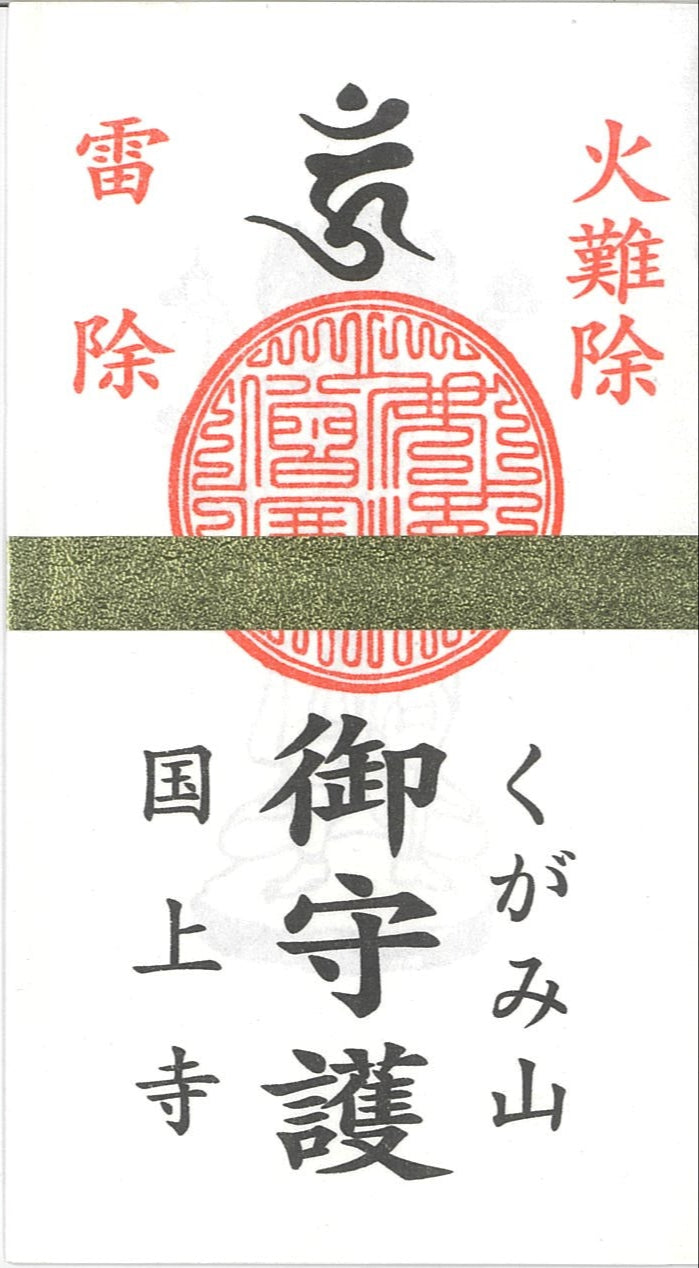 火難除
雷除
くがみ山
御守護
国上寺